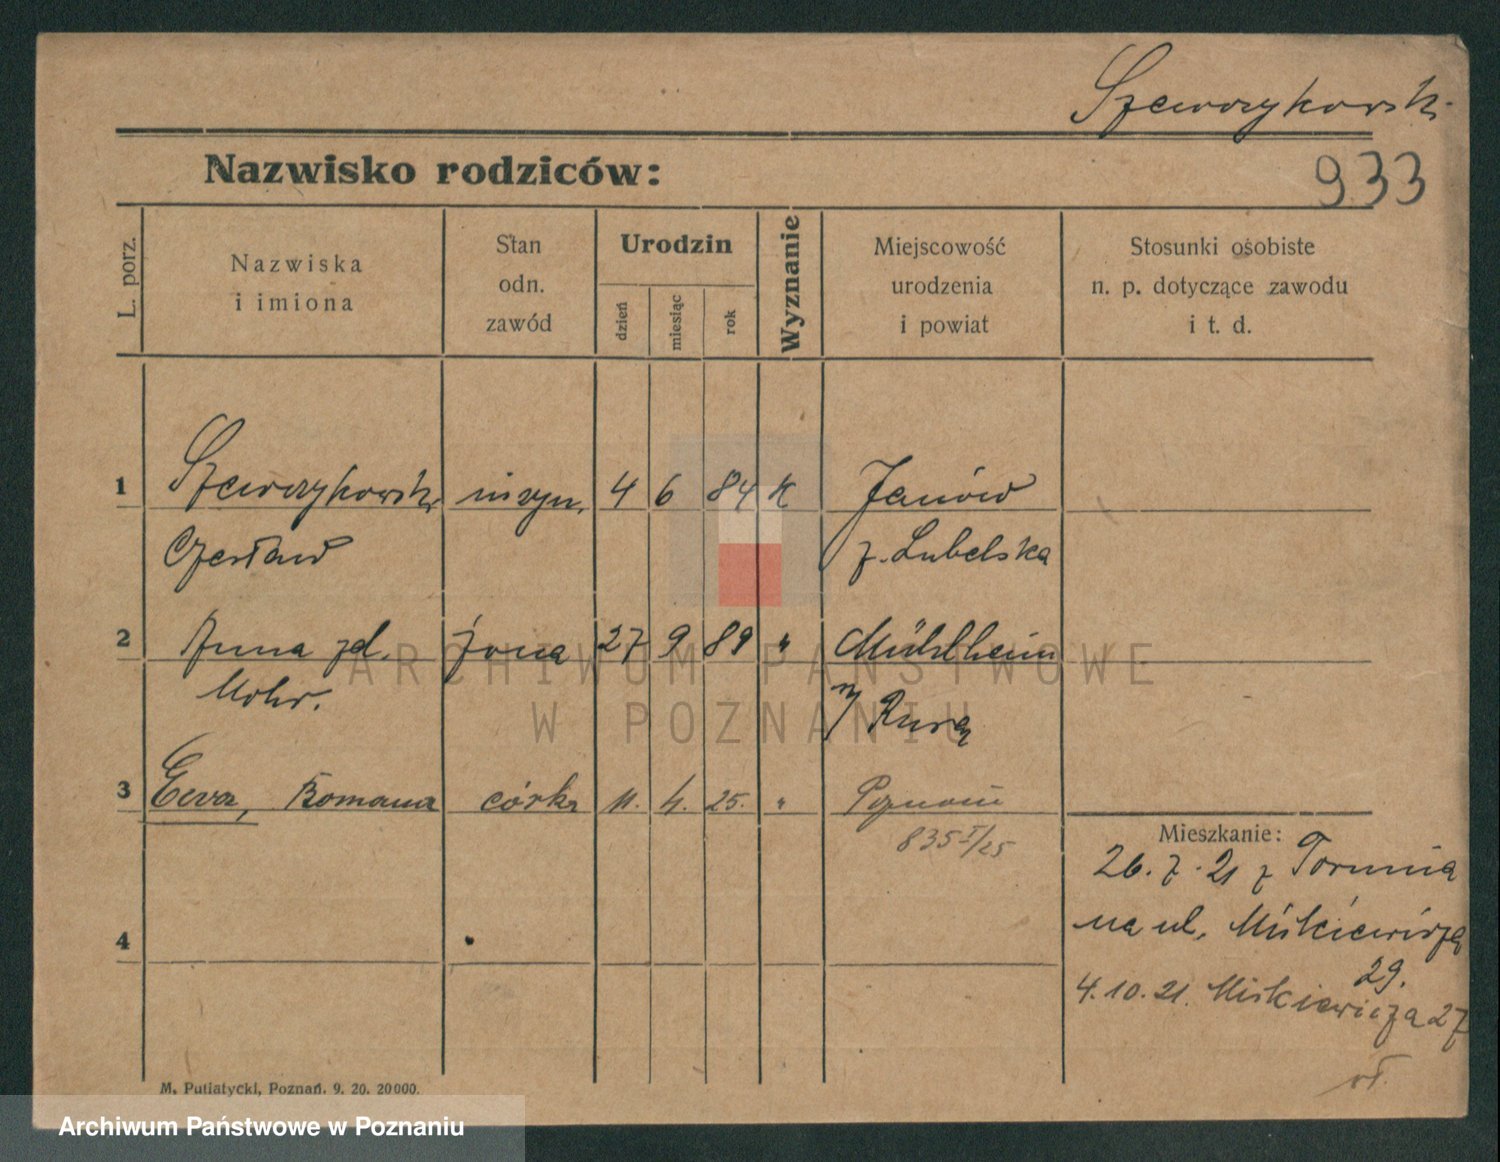 Szewczykowski
Nazwisko rodziców:
933
L. porz.
Nazwiska
i imiona
Stan
odn.
zawód
Urodzin
dzień
miesiąc
rok
Wyznanie
Miejscowość
urodzenia
i powiat
Stosunki osobiste
n. p. dotyczące zawodu
i t. d.
1 Szewczykowski inżyn. 4 6 84 K Janów
Czesław z. Lubelska
2 Anna zd. żona 27 9 89 " Mühlheim
Mohr. n/ Rurą
3 Ewa, Romana córka 11. 4. 25. " Poznań
835 I/25
Mieszkanie:
26. 7. 21 z Torunia
na ul. Mickiewicza
29.
4
4. 10. 21. Mickiewicza 27
M. Putiatycki, Poznań. 9. 20. 20000.
ARCHIWUM PAŃSTWOWE
W POZNANIU
Archiwum Państwowe w Poznaniu